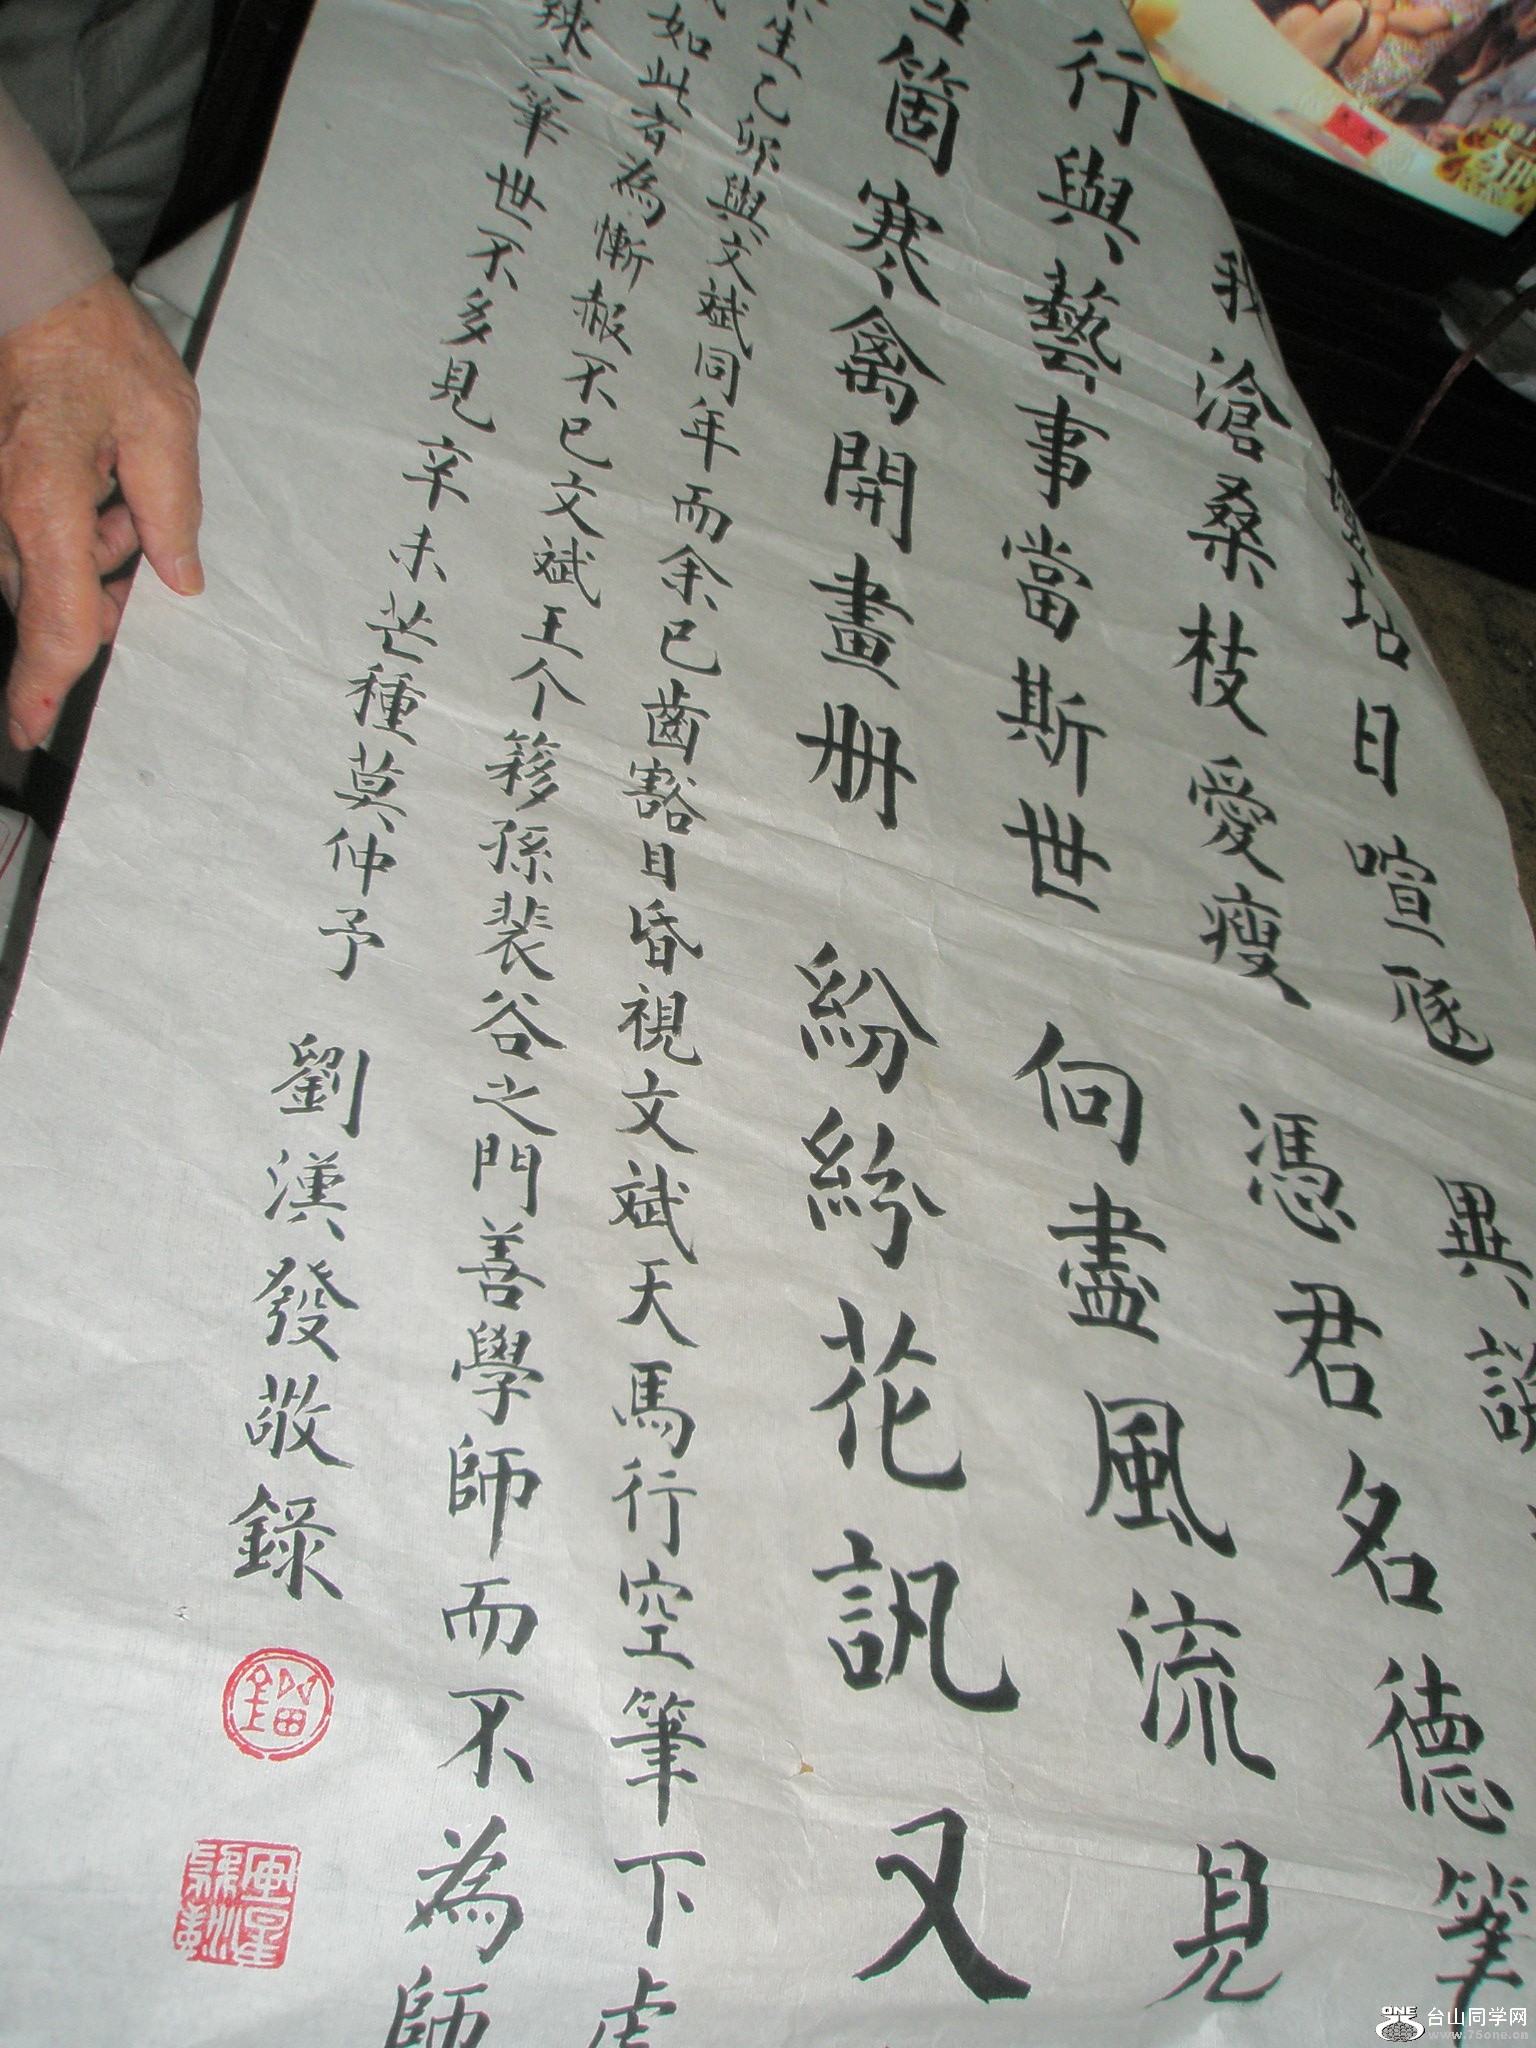 異說
壇坫日喧豗
我滄桑枝愛瘦 憑君名德筆
行與藝事當斯世 向盡風流見
箇寒禽開畫册 紛紛花訊又
生己卯與文斌同年而余已齒豁目昏視文斌天馬行空筆下
如此者為慚赧不已文斌王个簃孫裴谷之門善學師而不為師
辣之筆世不多見辛未芒種莫仲予 劉漢發敬錄
台山同学网
www.75one.cn
ONE